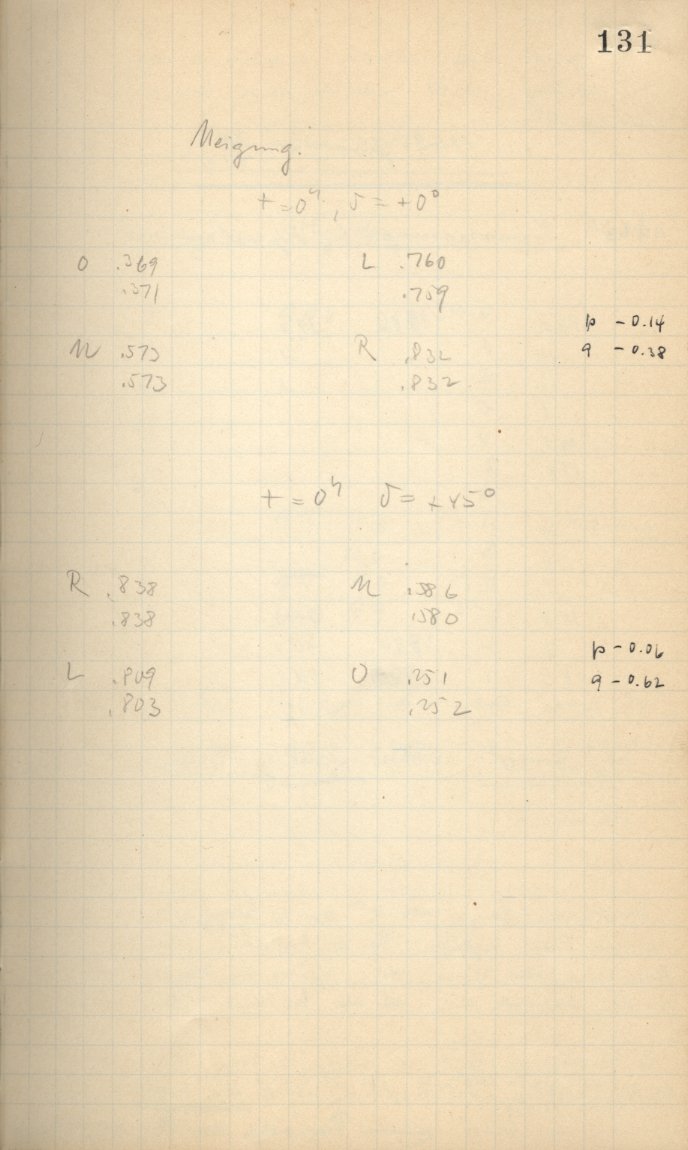 131
Neigung.
t = 0ʰ, δ = +0°
O .369 L .760
.371 .759
p - 0.14
U .573 R .832 q - 0.38
.573 .832
t = 0ʰ δ = +45°
R .838 U .586
.838 .580
p - 0.06
L .809 O .251 q - 0.62
.803 .252